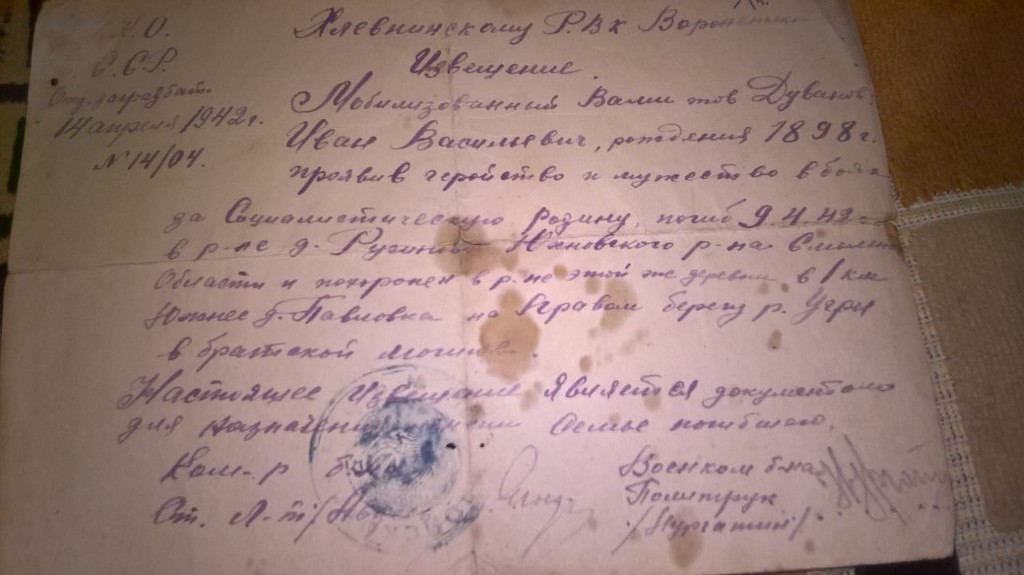 Н.О.
С.С.Р.
Отд. заградбат.
14 апреля 1942 г.
N 14/04.
Хлевнинскому Р.В.К Воронежск
Извещение.
Мобилизованный Вами тов Дуванов
Иван Васильевич, рождения 1898 г.
проявив геройство и мужество в боях
за Социалистическую родину, погиб 9.4.42 г
в р-не д. Русиново Юхновского р-на Смолен
Области и похоронен в р-не этой же деревни в 1 км
Южнее д. Павловка на правом берегу р. Угри
в братской могиле.
Настоящее извещение является документом
для назначения пенсии семье погибшего.
Ком-р б-на
Ст. Л-т /
Военком б-на
Политрук
/Нургатин/